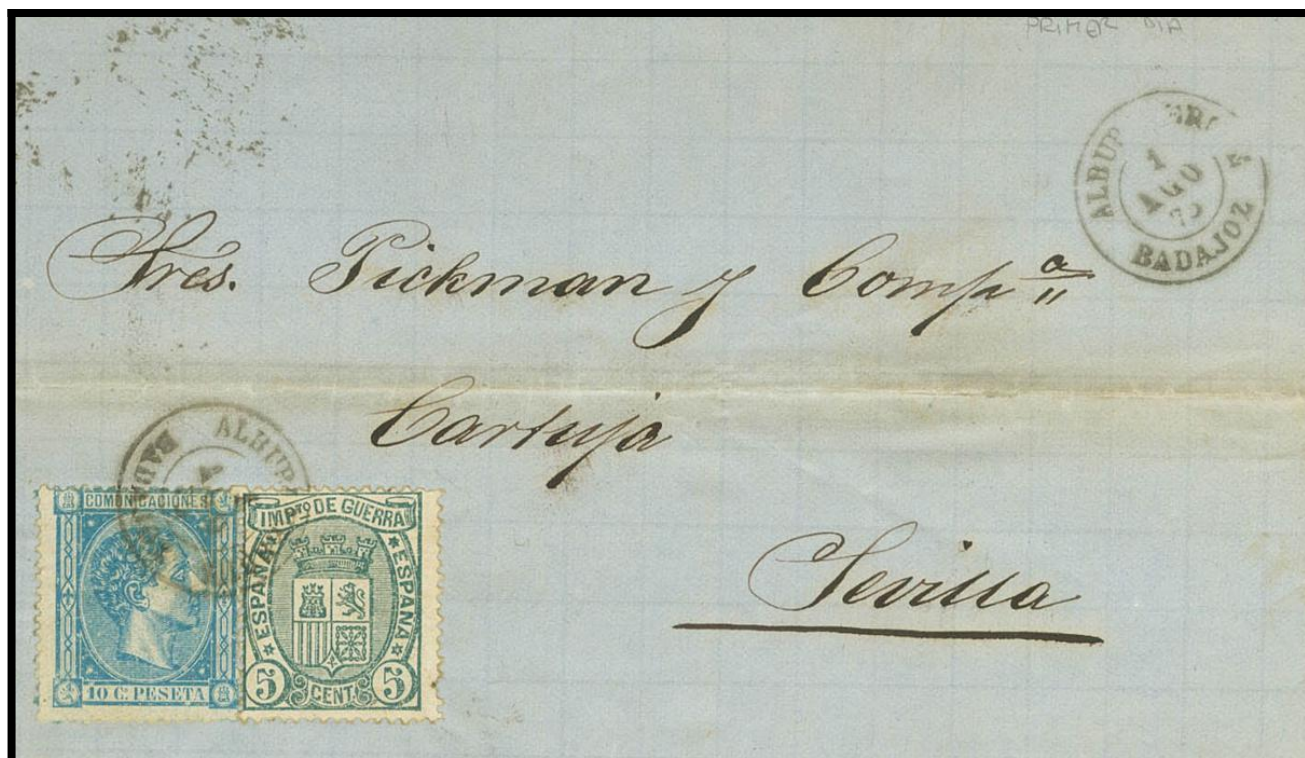 PRIMER DIA
ALBUR
1
AGO
BADAJOZ
Sres. Pickman y Comp.ª
Cartuja
Sevilla
ALBUR
COMUNICACIONES
10 C. PESETA
IMPTO DE GUERRA
ESPAÑA
ESPAÑA
5 CENT. 5